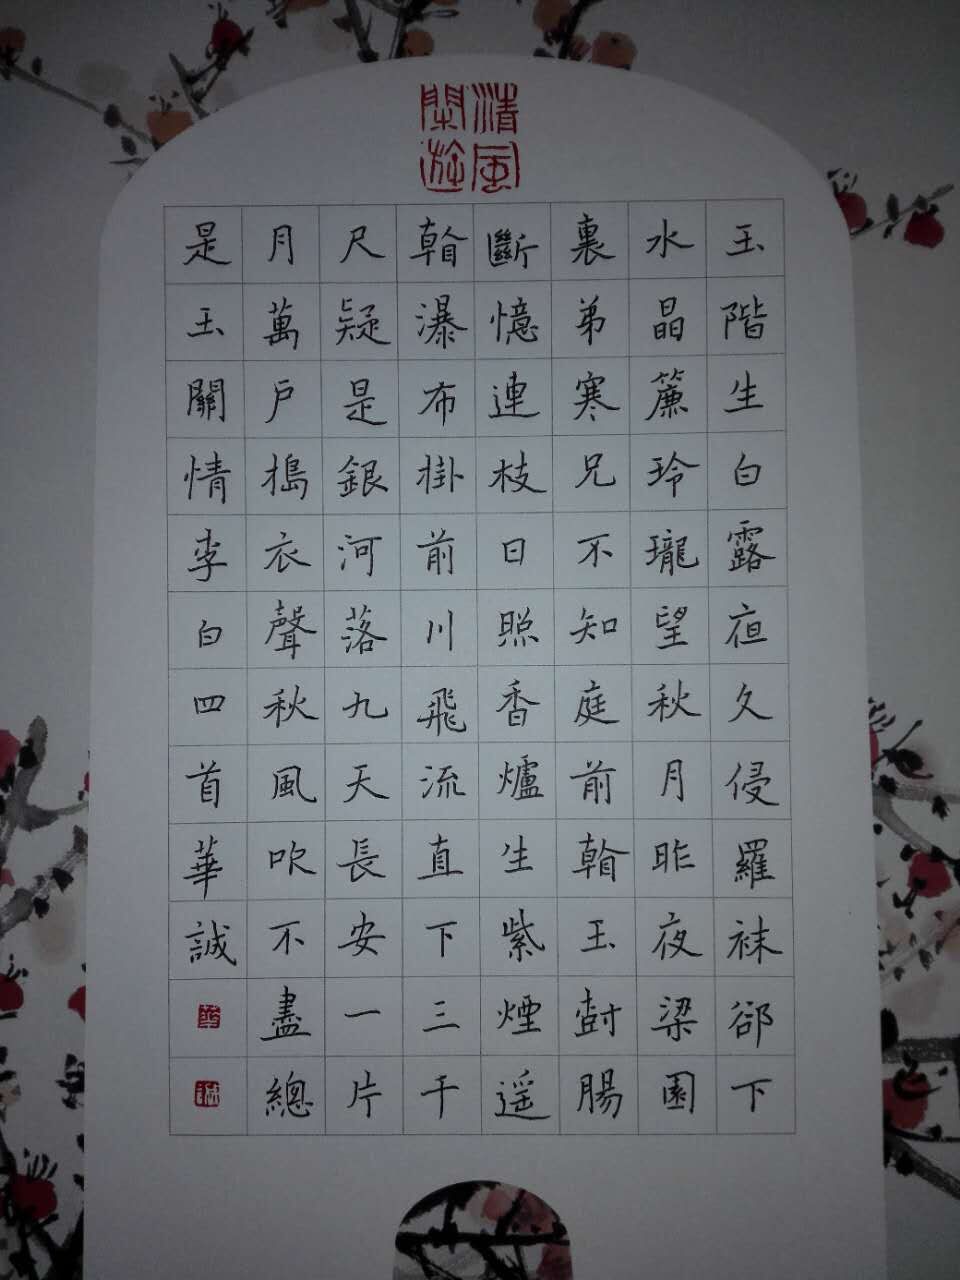 清風
閑遊
玉階生白露夜久侵羅袜郤下
水晶簾玲瓏望秋月昨夜梁園
裏弟寒兄不知庭前看玉樹腸
斷憶連枝日照香爐生紫煙遥
看瀑布掛前川飛流直下三千
尺疑是銀河落九天長安一片
月萬戶搗衣聲秋風吹不盡總
是玉關情李白四首華誠
華
誠